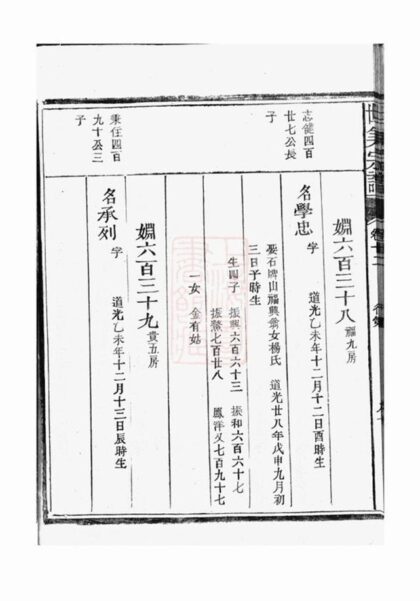 志健四百
廿七公長
子
嫺六百三十八 福九房
名學忠 字 道光乙未年十二月十二日酉時生
娶石牌山福興翁女楊氏 道光廿八年戊申九月初
三日子時生
生四子 振興六百六十三 振和六百六十七
振鰲七百廿八 鳳洋又七百九十七
一女 金有姑
秉任四百
九十公三
子
嫺六百三十九 貴五房
名承列 字 道光乙未年十二月十三日辰時生